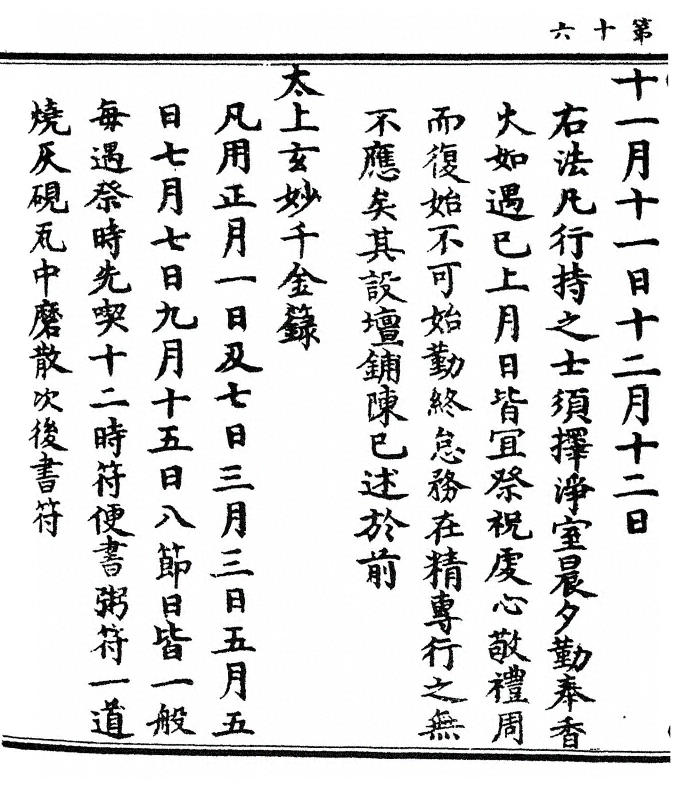 第十六
十一月十一日十二月十二日
右法凡行持之士須擇淨室晨夕勤奉香
火如遇已上月日皆宜祭祝虔心敬禮周
而復始不可始勤終怠務在精專行之無
不應矣其設壇鋪陳已述於前
太上玄妙千金籙
凡用正月一日及七日三月三日五月五
日七月七日九月十五日八節日皆一般
每遇祭時先喫十二時符便書粥符一道
燒灰硯瓦中磨散次後書符